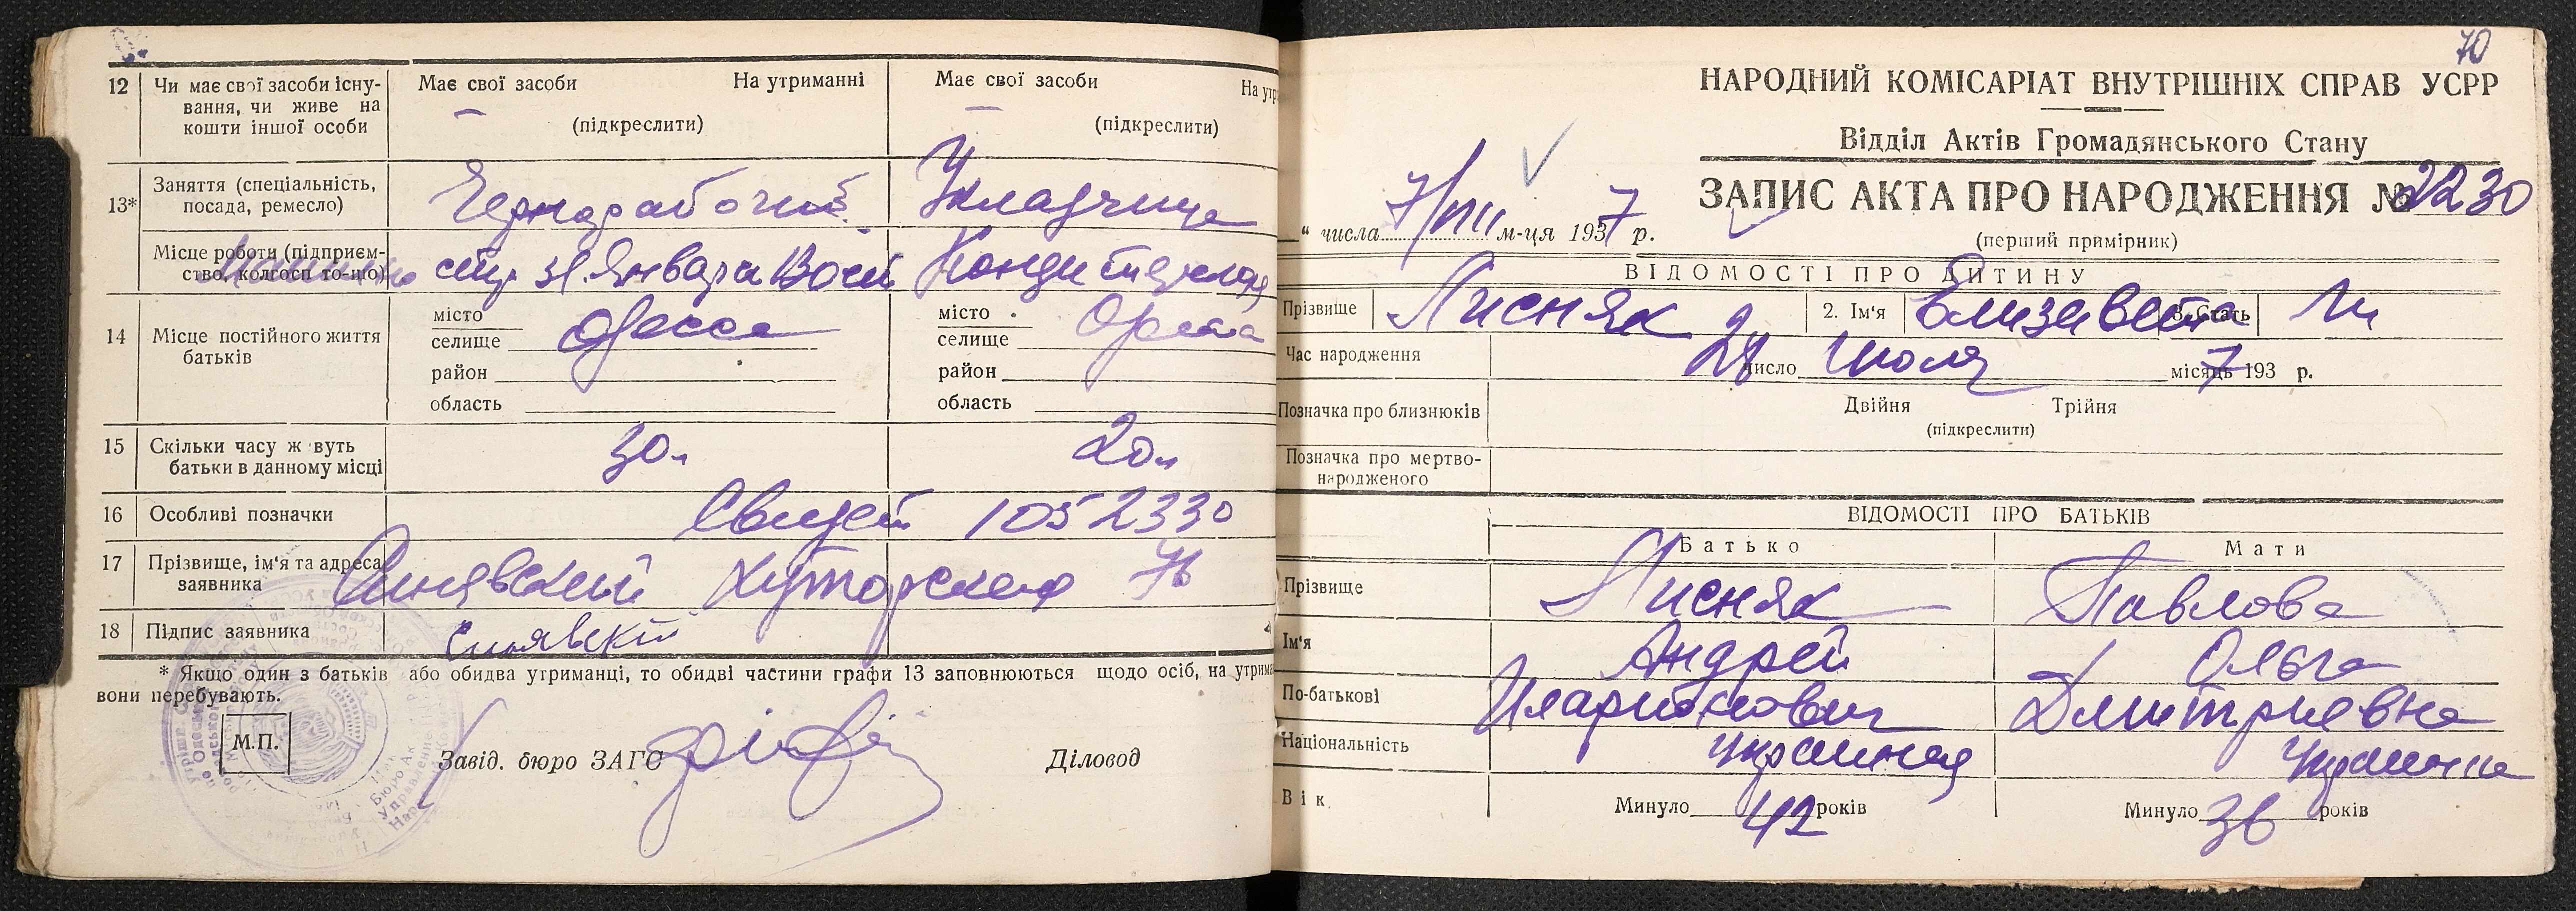 12 Чи має свої засоби існу-
вання, чи живе на
кошти іншої особи
Має свої засоби На утриманні
(підкреслити)
Має свої засоби На утр
(підкреслити)
13* Заняття (спеціальність,
посада, ремесло)
Чернорабочий
Укладчица
Місце роботи (підприєм-
ство, колгосп то-що)
стр. Января
14 Місце постійного життя
батьків
місто
селище
район
область
Одесса
місто
селище
район
область
Одесса
15 Скільки часу ж вуть
батьки в данному місці
30 л
20 л
16 Особливі позначки
Свидет 1052330
17 Прізвище, ім'я та адреса
заявника
Синявский Хуторская 76
18 Підпис заявника
Синявскій
* Якщо один з батьків або обидва утриманці, то обидві частини графи 13 заповнюються щодо осіб, на утрима
вони перебувають.
М.П.
Завід. бюро ЗАГС
Діловод
70
НАРОДНИЙ КОМІСАРІАТ ВНУТРІШНІХ СПРАВ УСРР
Відділ Актів Громадянського Стану
ЗАПИС АКТА ПРО НАРОДЖЕННЯ № 2230
" числа 7/VIII м-ця 1937 р.
(перший примірник)
ВІДОМОСТІ ПРО ДИТИНУ
Прізвище Лисняк 2. Ім'я Елизавета 3. Стать
Час народження 28 число Июля місяць 193 7 р.
Позначка про близнюків
Двійня Трійня
(підкреслити)
Позначка про мертво-
народженого
ВІДОМОСТІ ПРО БАТЬКІВ
Батько Мати
Прізвище Лисняк Павлова
Ім'я Андрей Ольга
По-батькові Иларионович Дмитриевна
Національність Украинец Украинка
Вік Минуло 42 років Минуло 36 років